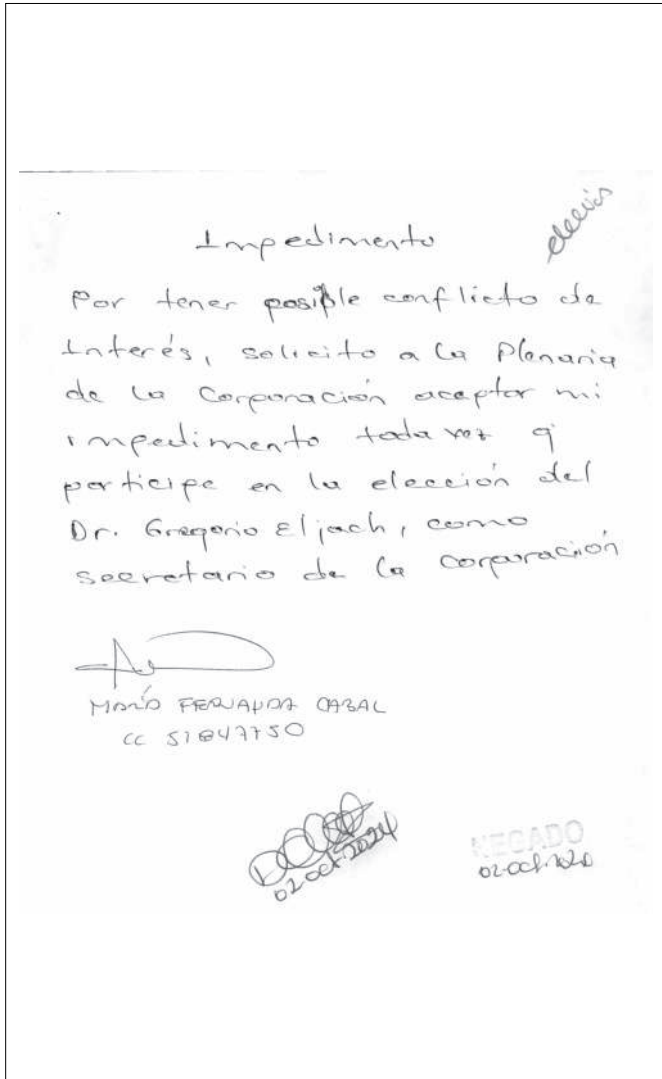 elección
Impedimento
Por tener posible conflicto de
Interés, solicito a la Plenaria
de la Corporación aceptar mi
impedimento toda vez q
participe en la elección del
Dr. Gregorio Eljach, como
secretario de la corporación
MARÍA FERNANDA CABAL
CC 51847750
02 oct 2024
NEGADO
02 oct